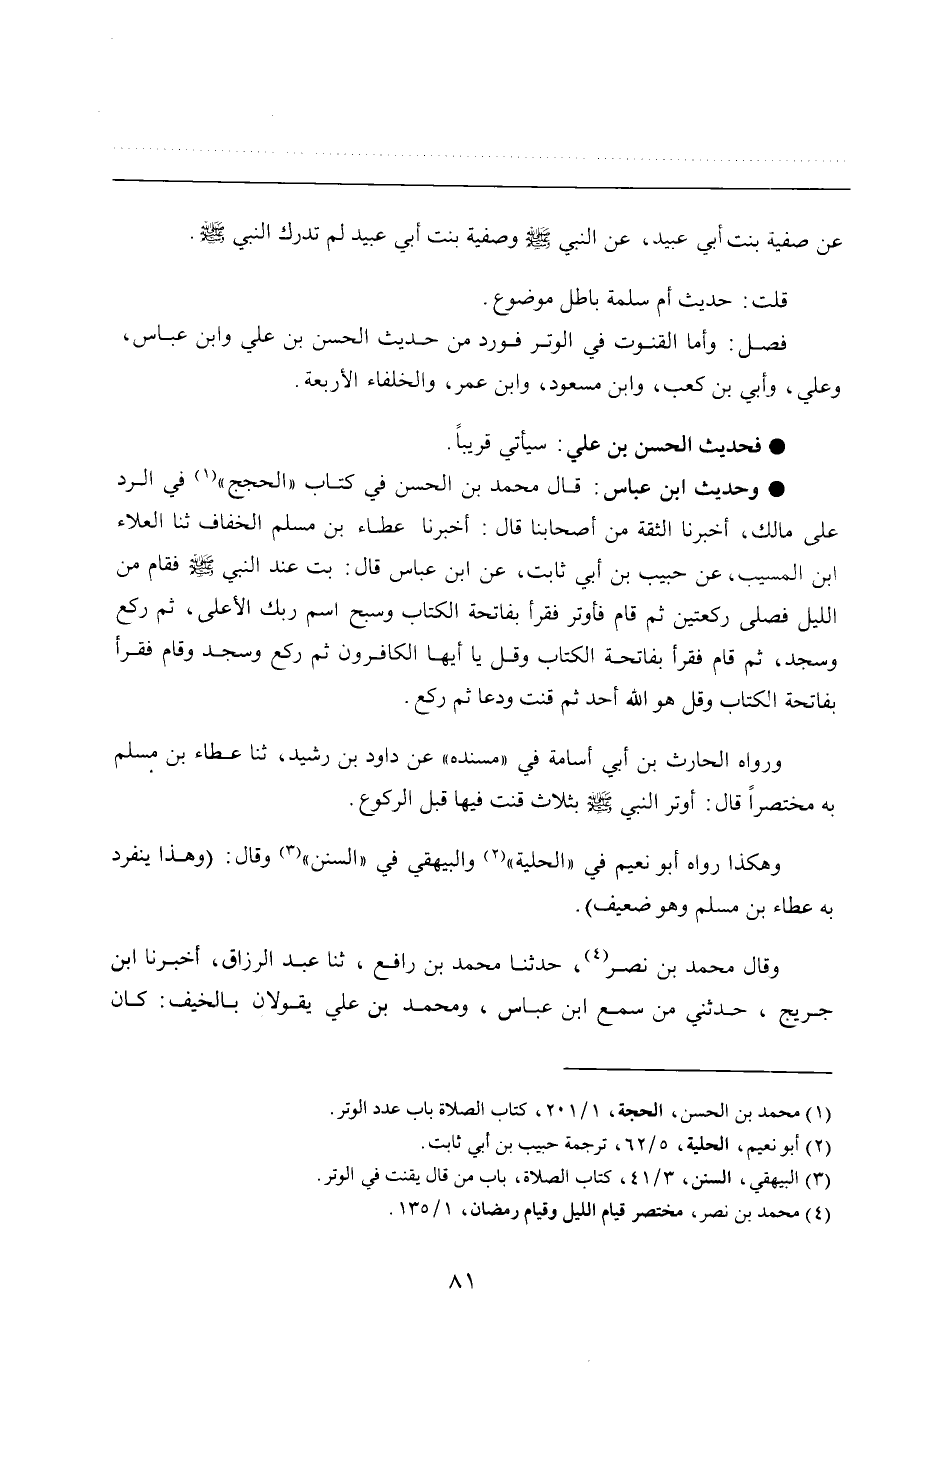 عن صفية بنت أبي عبيد، عن النبي ﷺ وصفية بنت أبي عبيد لم تدرك النبي ﷺ.
قلت: حديث أم سلمة باطل موضوع.
فصل: وأما القنوت في الوتر فورد من حديث الحسن بن علي وابن عباس،
وعلي، وأبي بن كعب، وابن مسعود، وابن عمر، والخلفاء الأربعة.
● فحديث الحسن بن علي: سيأتي قريباً.
● وحديث ابن عباس: قال محمد بن الحسن في كتاب «الحجج»(١) في الرد
على مالك، أخبرنا الثقة من أصحابنا قال: أخبرنا عطاء بن مسلم الخفاف ثنا العلاء
ابن المسيب، عن حبيب بن أبي ثابت، عن ابن عباس قال: بت عند النبي ﷺ فقام من
الليل فصلى ركعتين ثم قام فأوتر فقرأ بفاتحة الكتاب وسبح اسم ربك الأعلى، ثم ركع
وسجد، ثم قام فقرأ بفاتحة الكتاب وقل يا أيها الكافرون ثم ركع وسجد وقام فقرأ
بفاتحة الكتاب وقل هو الله أحد ثم قنت ودعا ثم ركع.
ورواه الحارث بن أبي أسامة في «مسنده» عن داود بن رشيد، ثنا عطاء بن مسلم
به مختصراً قال: أوتر النبي ﷺ بثلاث قنت فيها قبل الركوع.
وهكذا رواه أبو نعيم في «الحلية»(٢) والبيهقي في «السنن»(٣) وقال: (وهذا ينفرد
به عطاء بن مسلم وهو ضعيف).
وقال محمد بن نصر(٤)، حدثنا محمد بن رافع، ثنا عبد الرزاق، أخبرنا ابن
جريج، حدثني من سمع ابن عباس، ومحمد بن علي يقولان بالخيف: كان
(١) محمد بن الحسن، الحجة، ٢٠١/١، كتاب الصلاة باب عدد الوتر.
(٢) أبو نعيم، الحلية، ٦٢/٥، ترجمة حبيب بن أبي ثابت.
(٣) البيهقي، السنن، ٤١/٣، كتاب الصلاة، باب من قال يقنت في الوتر.
(٤) محمد بن نصر، مختصر قيام الليل وقيام رمضان، ١٣٥/١.
٨١